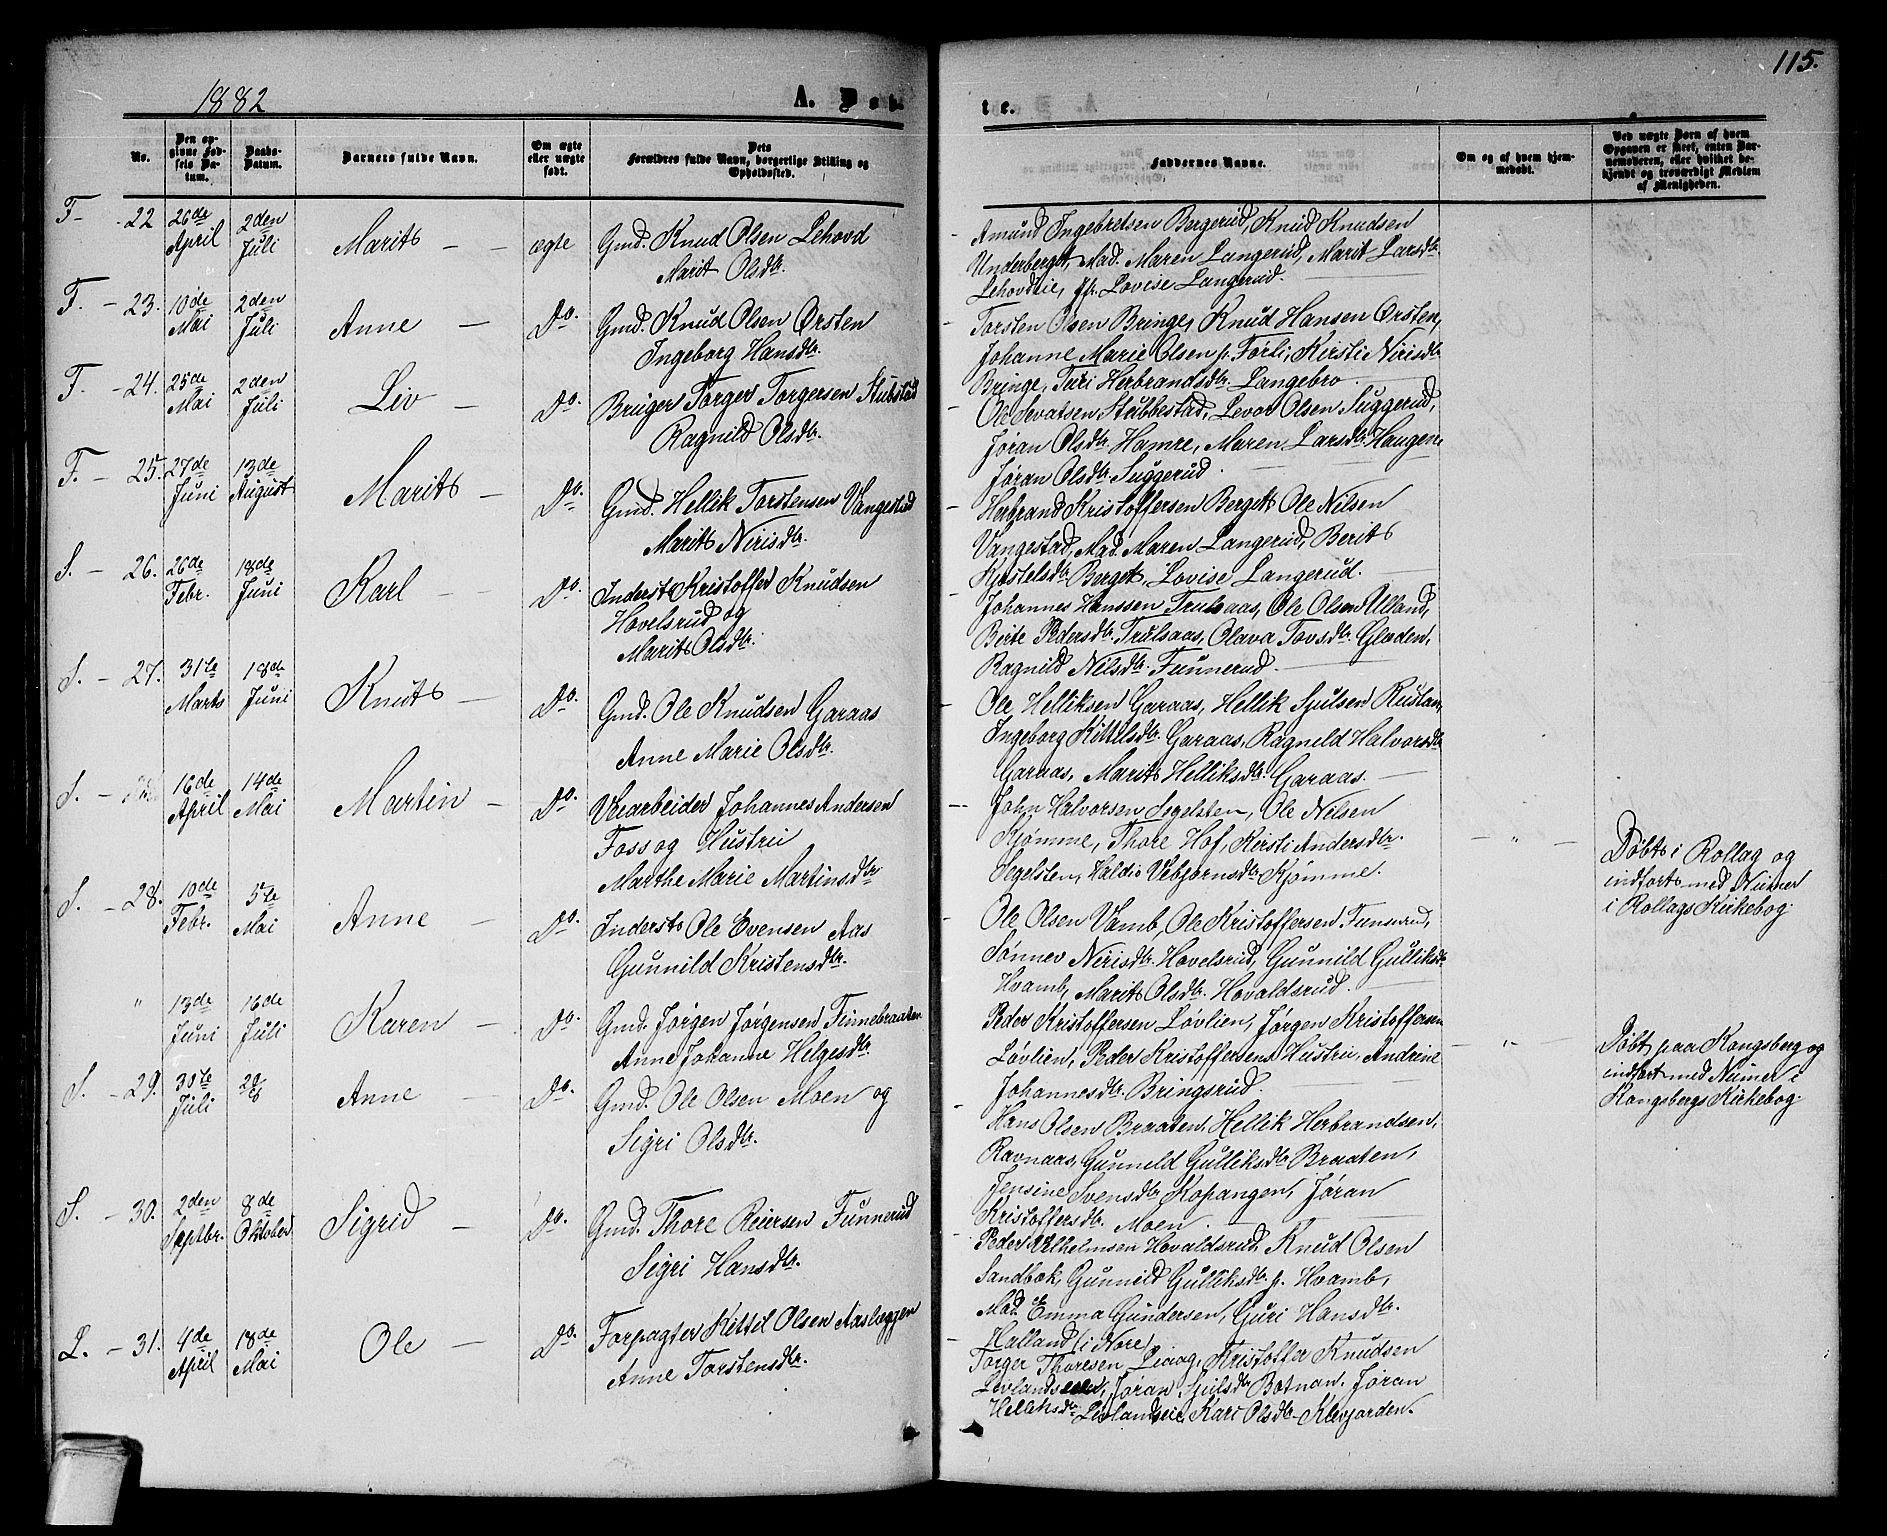 115.
1882
A. Døb
te.
No.
Den op-
givne Fød-
sels Da-
tum.
Daabs-
Datum.
Barnets fulde Navn.
Om ægte
eller uægte
født.
Dets
Forældres fulde Navn, borgerlige Stilling og
Opholdssted.
Faddernes Navne.
Om og af hvem hjem-
medøbt.
Ved uægte Børn af hvem
Opgaven er skeet, enten Bar-
nemoderen, eller hvilket be-
kjendt og troværdigt Medlem
af Menigheden.
F. - 22 26de April 2den Juli Marit - - ægte Gmd. Knud Olsen Lehovd
Marit Olsdtr.
Amund Ingebretsen Bergerud, Knud Knudsen
Underberget, Mad. Maren Langerud, Marit Larsdtr.
Lehovdeie, Jfr. Lovise Langerud.
F. - 23. 10de Mai 2den Juli Anne - Do. Gmd. Knud Olsen Ørsten
Ingeborg Hansdtr.
Torsten Olsen Bringe, Knud Hansen Ørsten,
Johanne Marie Olsen p. Førli, Kirsti Nirisdtr.
Bringe, Turi Herbrandsdtr. Langebro
F. - 24. 25de Mai 2den Juli Liv - Do. Bruger Torger Torgersen Stubstad
Ragnild Olsdtr.
Ole Sevatsen Stubbestad, Levor Olsen Suggerud,
Jøran Olsdtr. Hamre, Maren Larsdtr. Haugen
Jøran Olsdtr. Suggerud.
F. - 25. 27de Juni 13de August Marit - Do. Gmd. Hellik Torstensen Vangestad
Marit Nirisdtr.
Herbrand Kristoffersen Berget, Ole Nilsen
Vangestad, Mad. Maren Langerud, Berit
Kjøstelsdtr. Berget, Lovise Langerud.
S. - 26. 26de Febr. 18de Juni Karl - Do. Inderst Kristoffer Knudsen
Hovelsrud og
Marit Olsdtr.
Johannes Hanssen Trulsaas, Ole Olsen Ulland,
Birte Pedersdtr. Trulsaas, Olava Tovsdtr. Gladen,
Ragnild Nilsdtr. Funnerud.
S. - 27. 31te Marts 18de Juni Knut - Do. Gmd. Ole Knudsen Garaas
Anne Marie Olsdtr.
Ole Helliksen Garaas, Hellik Sjulsen Rustan,
Ingeborg Kittelsdtr. Garaas, Ragnild Halvorsdtr.
Garaas, Marit Helliksdtr. Garaas.
S. - 16de April 14de Mai Martin - Do. Veiarbeider Johannes Andersen
Foss og Hustru
Marthe Marie Martinsdtr
John Halvorsen Segelsten, Ole Nilsen
Kjømme, Thore Hof, Kirsti Andersdtr.
Segelsten, Haldis Vebjørnsdtr. Kjømme.
- " -
Døbt i Rollag og
indført med Numer
i Rollags Kirkebog.
S. - 28. 10de Febr. 5te Mai Anne - Do. Inderst Ole Evensen Aas
Gunnild Kristensdtr.
Ole Olsen Vamb, Ole Kristoffersen Funnerud,
Sønnev Nirisdtr. Hovelsrud, Gunnild Gulliksdtr.
Hvamb, Marit Olsdtr. Hovaldsrud.
" 13de Juni 16de Juli Karen - Do. Gmd. Jørgen Jørgensen Finnebraaten
Anne Johanne Helgesdtr.
Peder Kristoffersen Løvlien, Jørgen Kristoffersen
Løvlien, Peder Kristoffersens Hustru, Andrine
Johannesdtr. Bringsrud.
- " -
Døbt paa Kongsberg og
indført med Numer i
Kongsbergs Kirkebog.
S. - 29. Juli Anne - Do. Gmd. Ole Olsen Moen og
Sigri Olsdtr.
Hans Olsen Braaten, Hellik Herbrandsen,
Ravnaas, Gunneld Gulliksdtr. Braaten,
Jensine Svensdtr. Kopangen, Jøran
Kristoffersdtr. Moen.
S. - 30. 2den Septbr. 8de Oktober Sigrid - Do. Gmd. Thore Reiersen Funnerud
Sigri Hansdtr.
Peder Vilhelmsen Hovaldsrud, Knud Olsen
Sandbæk, Gunneld Gulliksdtr. p. Hvamb,
Mad. Emma Gundersen, Guri Hansdtr.
Halland (i Nore)
L. - 31. 4de April 18de Mai Ole - Do. Forpagter Kittil Olsen Aaslæggen
Anne Torstensdtr.
Torger Thoresen Liaag, Kristoffer Knudsen
Livlandseien, Jøran Sjulsdtr. Botnan, Jøran
Helliksdtr. Livlandseie, Kari Olsdtr. Klevjorden.